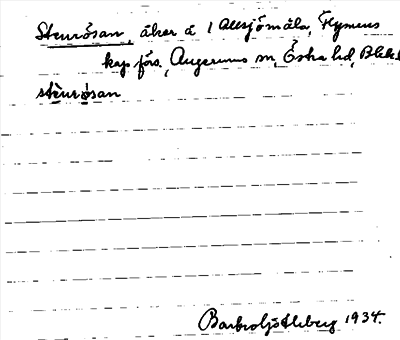 Stenrösan, åker å 1 Allsjömåla, Flymens
kap förs., Augerums sn, Östra hd, Blek.
stènrö̀san
Barbro Ljöthberg 1934.